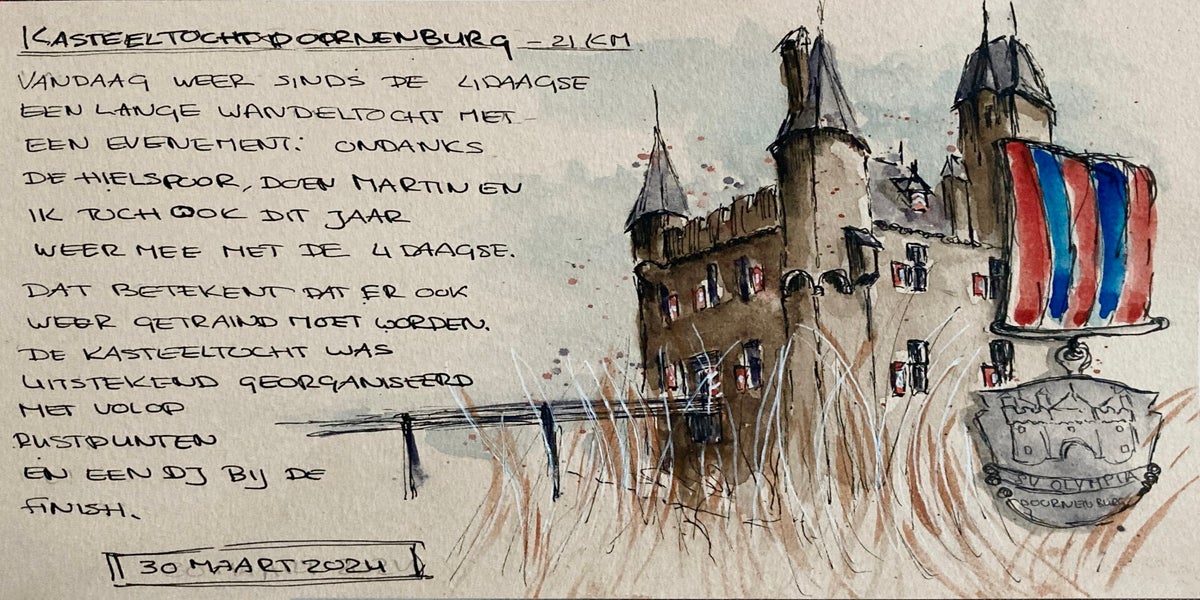 KASTEELTOCHT DOORNENBURG - 21 KM
VANDAAG WEER SINDS DE 4DAAGSE
EEN LANGE WANDELTOCHT MET
EEN EVENEMENT. ONDANKS
DE HIELSPOOR, DOEN MARTIN EN
IK TOCH OOK DIT JAAR
WEER MEE MET DE 4DAAGSE.
DAT BETEKENT DAT ER OOK
WEER GETRAIND MOET WORDEN.
DE KASTEELTOCHT WAS
UITSTEKEND GEORGANISEERD
MET VOLOP
RUSTPUNTEN
EN EEN DJ BIJ DE
FINISH.
30 MAART 2024
SV OLYMPIA
DOORNENBURG